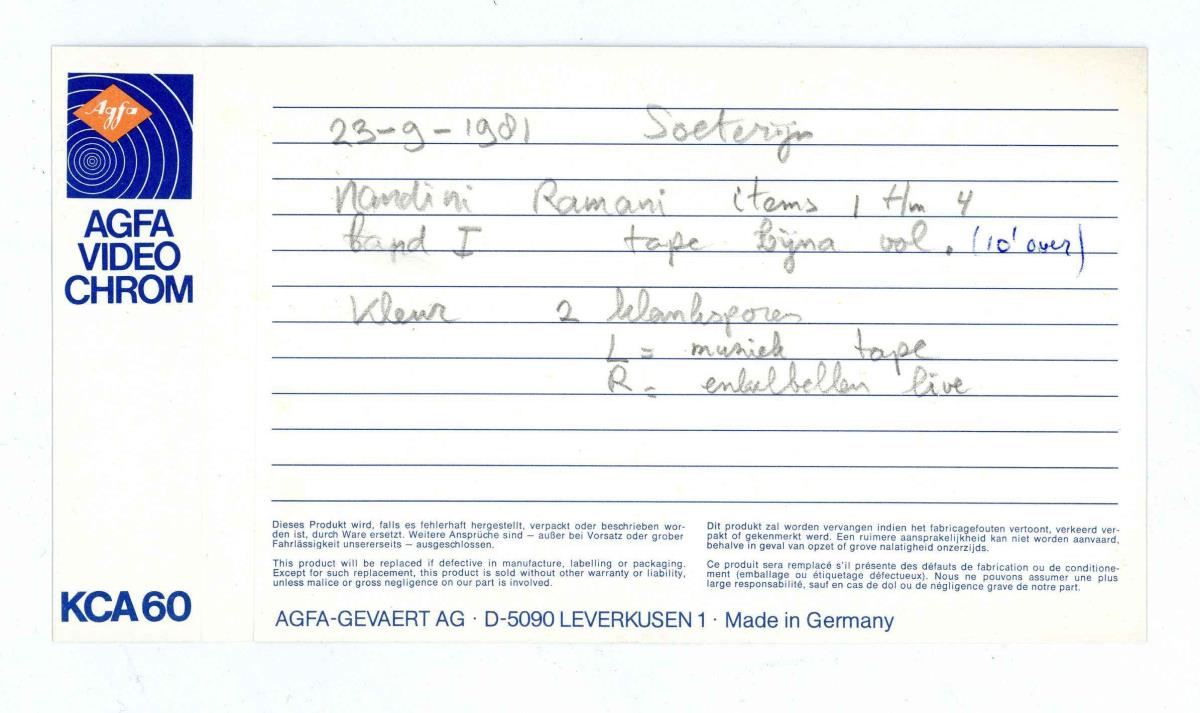 Agfa
AGFA
VIDEO
CHROM
KCA 60
23-9-1981 Soeterijn
Nandini Ramani items 1 t/m 4
band I tape bijna vol. (10' over)
Kleur 2 klanksporen
L = muziek tape
R = enkelbellen live
Dieses Produkt wird, falls es fehlerhaft hergestellt, verpackt oder beschrieben wor-
den ist, durch Ware ersetzt. Weitere Ansprüche sind – außer bei Vorsatz oder grober
Fahrlässigkeit unsererseits – ausgeschlossen.
This product will be replaced if defective in manufacture, labelling or packaging.
Except for such replacement, this product is sold without other warranty or liability,
unless malice or gross negligence on our part is involved.
Dit produkt zal worden vervangen indien het fabricagefouten vertoont, verkeerd ver-
pakt of gekenmerkt werd. Een ruimere aansprakelijkheid kan niet worden aanvaard,
behalve in geval van opzet of grove nalatigheid onzerzijds.
Ce produit sera remplacé s'il présente des défauts de fabrication ou de conditionne-
ment (emballage ou étiquetage défectueux). Nous ne pouvons assumer une plus
large responsabilité, sauf en cas de dol ou de négligence grave de notre part.
AGFA-GEVAERT AG · D-5090 LEVERKUSEN 1 · Made in Germany